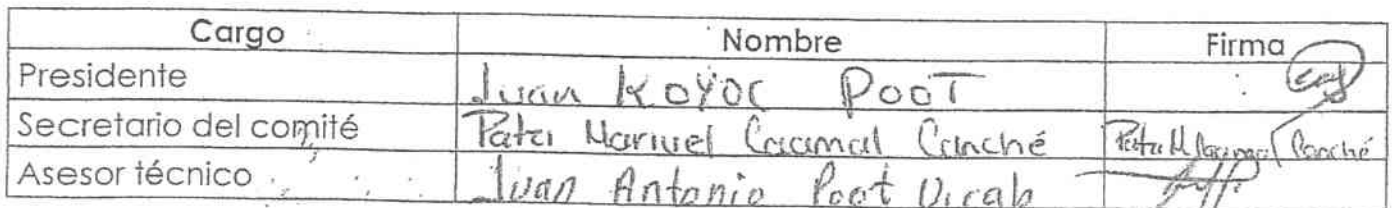 Cargo Nombre Firma
Presidente Juan Koyoc Poot
Secretario del comité Manuel Caamal Canché Canché
Asesor técnico Juan Antonio Poot Uicab